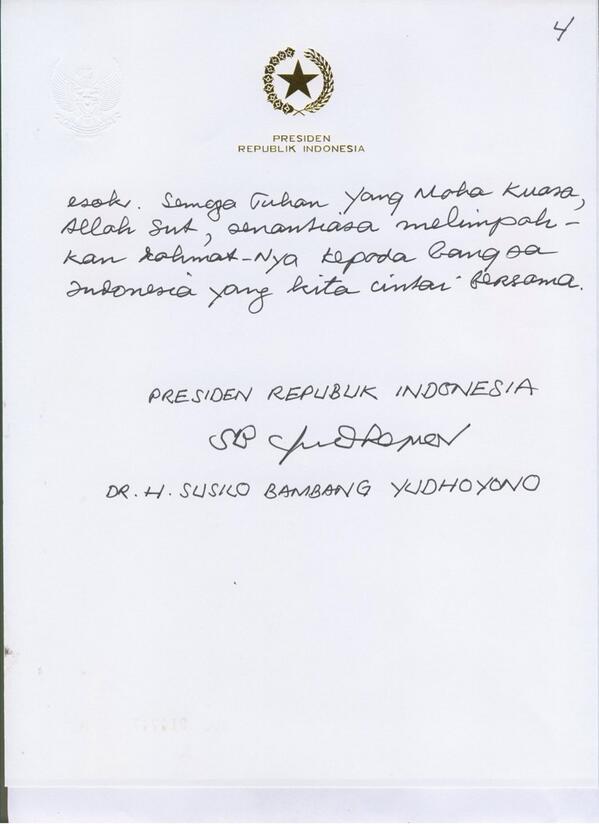 4
PRESIDEN
REPUBLIK INDONESIA
esok. Semoga Tuhan Yang Maha Kuasa,
Allah Swt, senantiasa melimpah-
kan rahmat-Nya kepada bangsa
Indonesia yang kita cintai bersama.
PRESIDEN REPUBLIK INDONESIA
SB Yudhoyono
DR. H. SUSILO BAMBANG YUDHOYONO